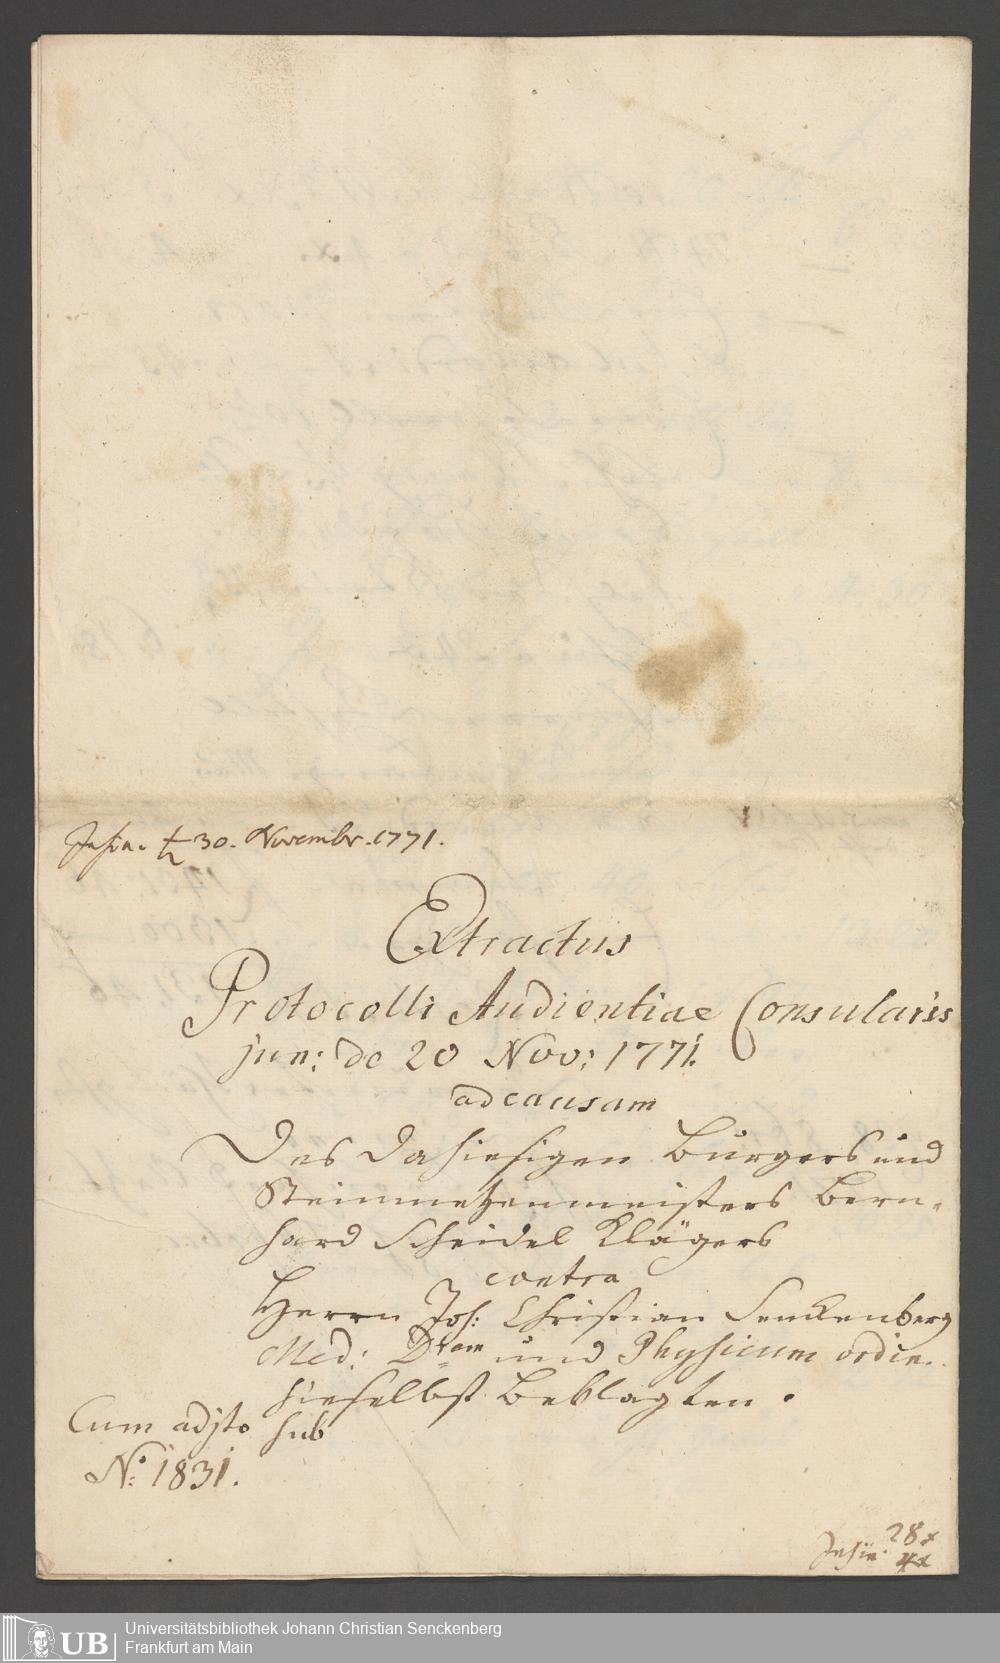 Insin. ♄ 30. Novembr. 1771.
Extractus
Protocolli Audientiae Consularis
jun: de 20 Nov: 1771.
ad causam
Des dahiesigen Burgers und
Steinmetzenmeisters Bern-
hard Scheidel Klägers
contra
Herrn Joh: Christian Senckenberg
Med: Dtom und Physicum ordin.
hieselbst Beklagten.
Cum adjto sub
No: 1831.
28x
Insin: 4x
Universitätsbibliothek Johann Christian Senckenberg
UB Frankfurt am Main